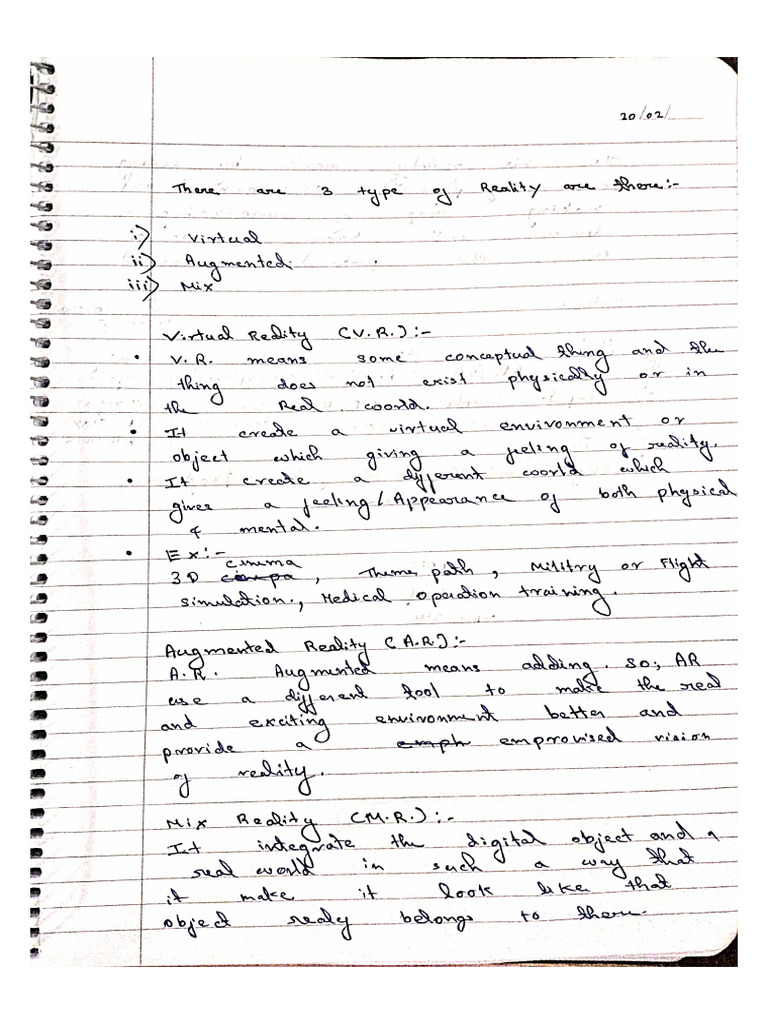 20/02/
There are 3 type of Reality are there:-
i) Virtual
ii) Augmented
iii) Mix
Virtual Reality (V.R.):-
• V.R. means some conceptual thing and the
thing does not exist physically or in
the Real world.
• It create a virtual environment or
object which giving a feeling of reality.
• It create a different world which
gives a feeling/Appearance of both physical
& mental.
• Ex:-
cinema
3D , Themes path, Militry or Flight
simulation., Medical operation training.
Augmented Reality (A.R):-
A.R. Augmented means adding. So; AR
use a different tool to make the real
and exciting environment better and
provide a emph emprovised vision
of reality.
Mix Reality (M.R.):-
It integrate the digital object and a
real world in such a way that
it make it look like that
object realy belongs to there.